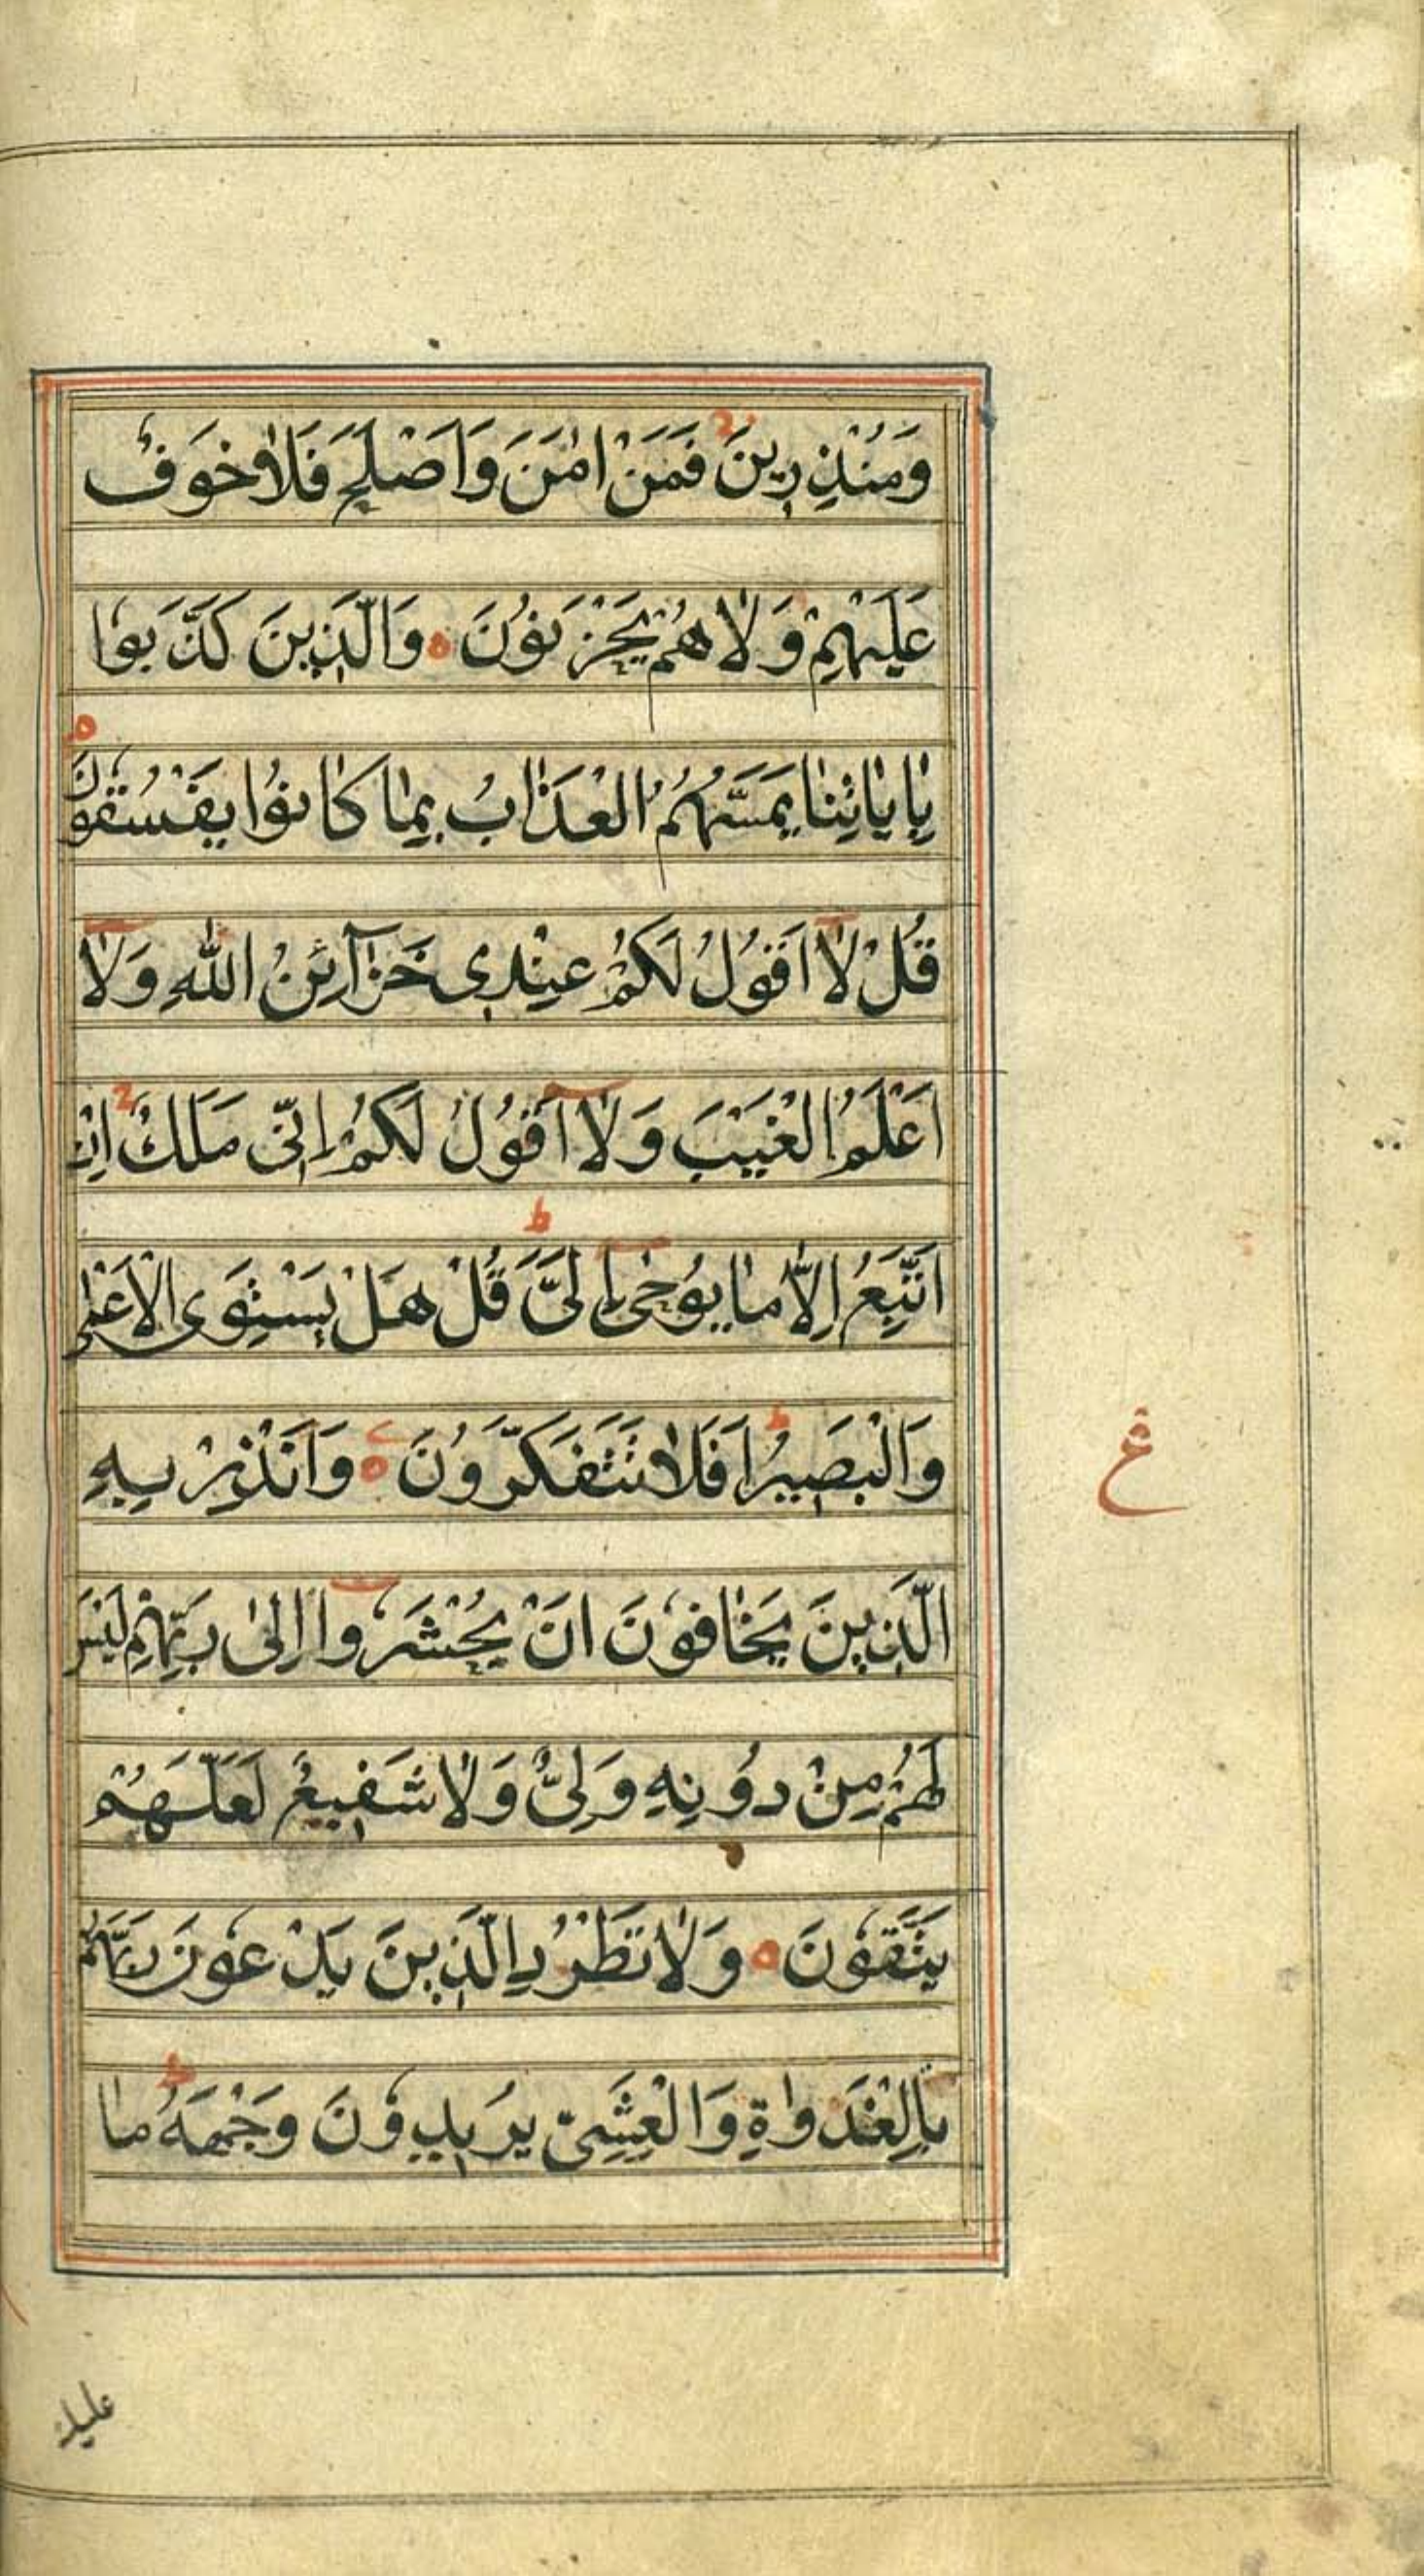 وَمُنْذِرِينَ فَمَنْ اٰمَنَ وَاَصْلَحَ فَلَا خَوْفٌ
عَلَيْهِمْ وَلَا هُمْ يَحْزَنُوْنَ ه وَالَّذِينَ كَذَّبُوا
بِاٰيَاتِنَا يَمَسُّهُمُ الْعَذَابُ بِمَا كَانُوْا يَفْسُقُونَ ه
قُلْ لَا اَقُوْلُ لَكُمْ عِنْدِى خَزَآئِنُ اللهِ وَلَا
اَعْلَمُ الْغَيْبَ وَلَا اَقُوْلُ لَكُمْ اِنِّى مَلَكٌ اِنْ
اَتَّبِعُ اِلَّا مَا يُوْحٰى اِلَىَّ ط قُلْ هَلْ يَسْتَوِى الْاَعْمٰى
وَالْبَصِيرُ ط اَفَلَا تَتَفَكَّرُوْنَ ه وَاَنْذِرْ بِهِ
ع
الَّذِينَ يَخَافُونَ اَنْ يُحْشَرُوا اِلىٰ رَبِّهِمْ لَيْسَ
لَهُمْ مِنْ دُوْنِهِ وَلِىٌّ وَلَا شَفِيعٌ لَعَلَّهُمْ
يَتَّقُونَ ه وَلَا تَطْرُدِ الَّذِينَ يَدْعُونَ رَبَّهُمْ
بِالْغَدَوٰةِ وَالْعَشِىِّ يُرِيدُونَ وَجْهَهُ ط مَا
عليك